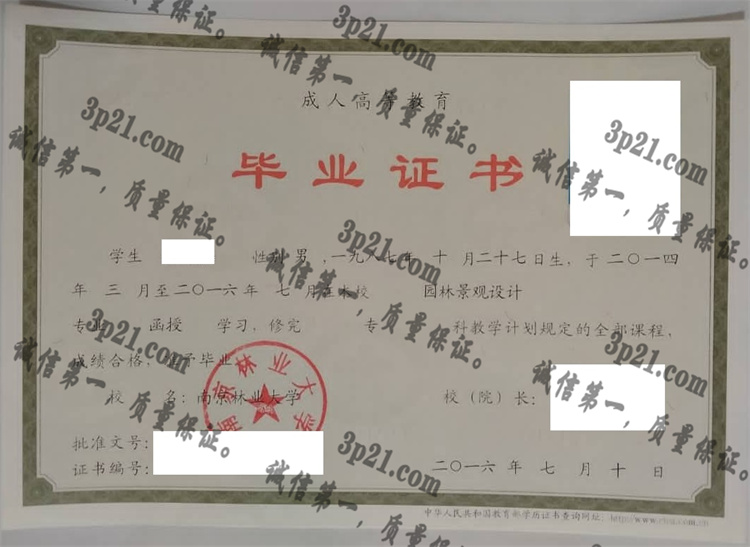 成人高等教育
毕业证书
学生 性别 男 ,一九八七年 十 月二十七日生,于二〇一四
年 三 月至二〇一六年 七 月在本校 园林景观设计
专业 函授 学习,修完 专 科教学计划规定的全部课程,
成绩合格,准予毕业。
校 名:南京林业大学
校(院)长:
南京林业大学
批准文号:
证书编号:
二〇一六 年 七 月 十 日
中华人民共和国教育部学历证书查询网址:
3p21.com
诚信第一,质量保证。
3p21.com
诚信第一,质量保证。
3p21.com
诚信第一,质量保证。
3p21.com
诚信第一,质量保证。
3p21.com
诚信第一,质量保证。
3p21.com
诚信第一,质量保证。
3p21.com
诚信第一,质量保证。